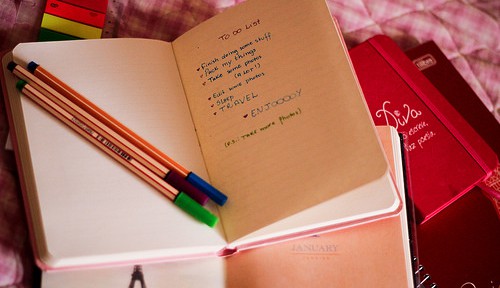 TO DO LIST
Finish doing some stuff
Pack my things
Take some photos
(A LOT!)
Edit some photos
Sleep
TRAVEL
ENJOOOOY
(P.S.: TAKE MORE PHOTOS)
Diva
JANUARY